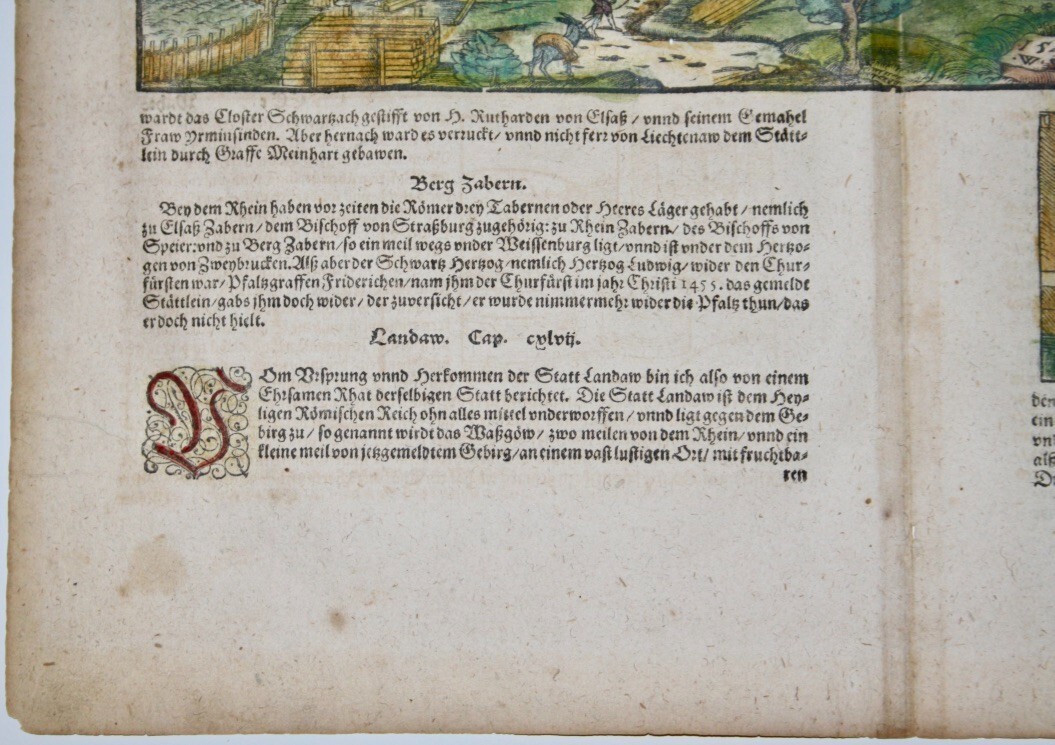 wardt das Closter Schwartzach gestifft von H. Rutharden von Elsaß / vnnd seinem Gemahel
Fraw Yrminsinden. Aber hernach ward es verruckt / vnnd nicht ferr von Liechtenaw dem Stätt-
lein durch Graffe Meinhart gebawen.
Berg Zabern.
Bey dem Rhein haben vor zeiten die Römer drey Tabernen oder Heeres Läger gehabt / nemlich
zu Elsaß Zabern / dem Bischoff von Straßburg zugehörig: zu Rhein Zabern / des Bischoffs von
Speier: vnd zu Berg Zabern / so ein meil wegs vnder Weissenburg ligt / vnnd ist vnder dem Hertzo-
gen von Zweybrucken. Alß aber der Schwartz Hertzog / nemlich Hertzog Ludwig / wider den Chur-
fürsten war / Pfaltzgraffen Friderichen / nam jhm der Churfürst im jahr Christi 1455. das gemeldt
Stättlein / gabs jhm doch wider / der zuversicht / er wurde nimmermehr wider die Pfaltz thun / das
er doch nicht hielt.
Landaw. Cap. cxlvij.
VOm Vrsprung vnnd Herkommen der Statt Landaw bin ich also von einem
Ehrsamen Rhat derselbigen Statt berichtet. Die Statt Landaw ist dem Hey-
ligen Römischen Reich ohn alles mittel vnderworffen / vnnd ligt gegen dem Ge-
birg zu / so genannt wirdt das Waßgöw / zwo meilen von dem Rhein / vnnd ein
kleine meil von jetzgemeldtem Gebirg / an einem vast lustigen Ort / mit fruchtba-
ren
den
ein
vnd
alß